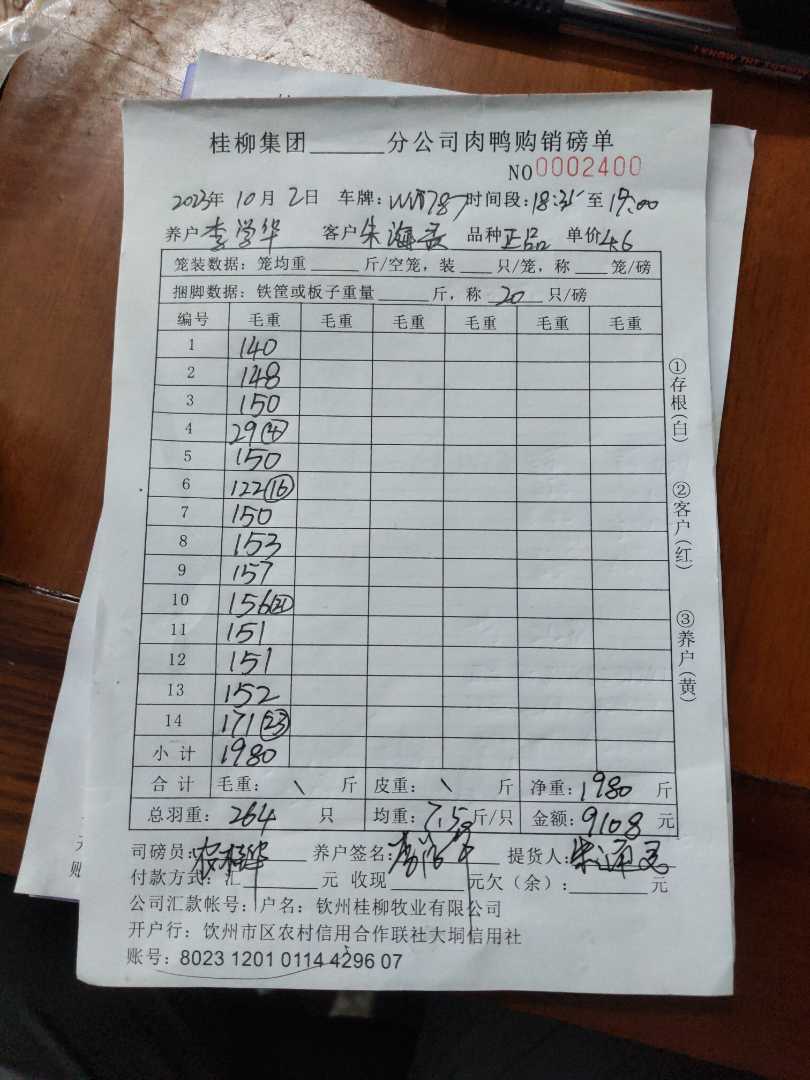 桂柳集团______分公司肉鸭购销磅单
NO0002400
2023年10月2日 车牌: 时间段:18:35至19:00
养户李学华 客户朱海 品种正品 单价4.6
笼装数据:笼均重____斤/空笼,装___只/笼,称___笼/磅
捆脚数据:铁筐或板子重量____斤,称 20 只/磅
编号 毛重 毛重 毛重 毛重 毛重 毛重
1 140
2 148
3 150
4 29④
5 150
6 122⑯
7 150
8 153
9 157
10 156㉑
11 151
12 151
13 152
14 171㉓
小计 1980
合计 毛重: \ 斤 皮重: \ 斤 净重:1980 斤
总羽重: 264 只 均重:7.5斤/只 金额:9108 元
司磅员: 养户签名: 提货人:
付款方式:汇______元 收现______元欠(余):______元
公司汇款帐号:户名:钦州桂柳牧业有限公司
开户行:饮州市区农村信用合作联社大垌信用社
账号:8023 1201 0114 4296 07
①存根(白)
②客户(红)
③养户(黄)
I KNOW THE